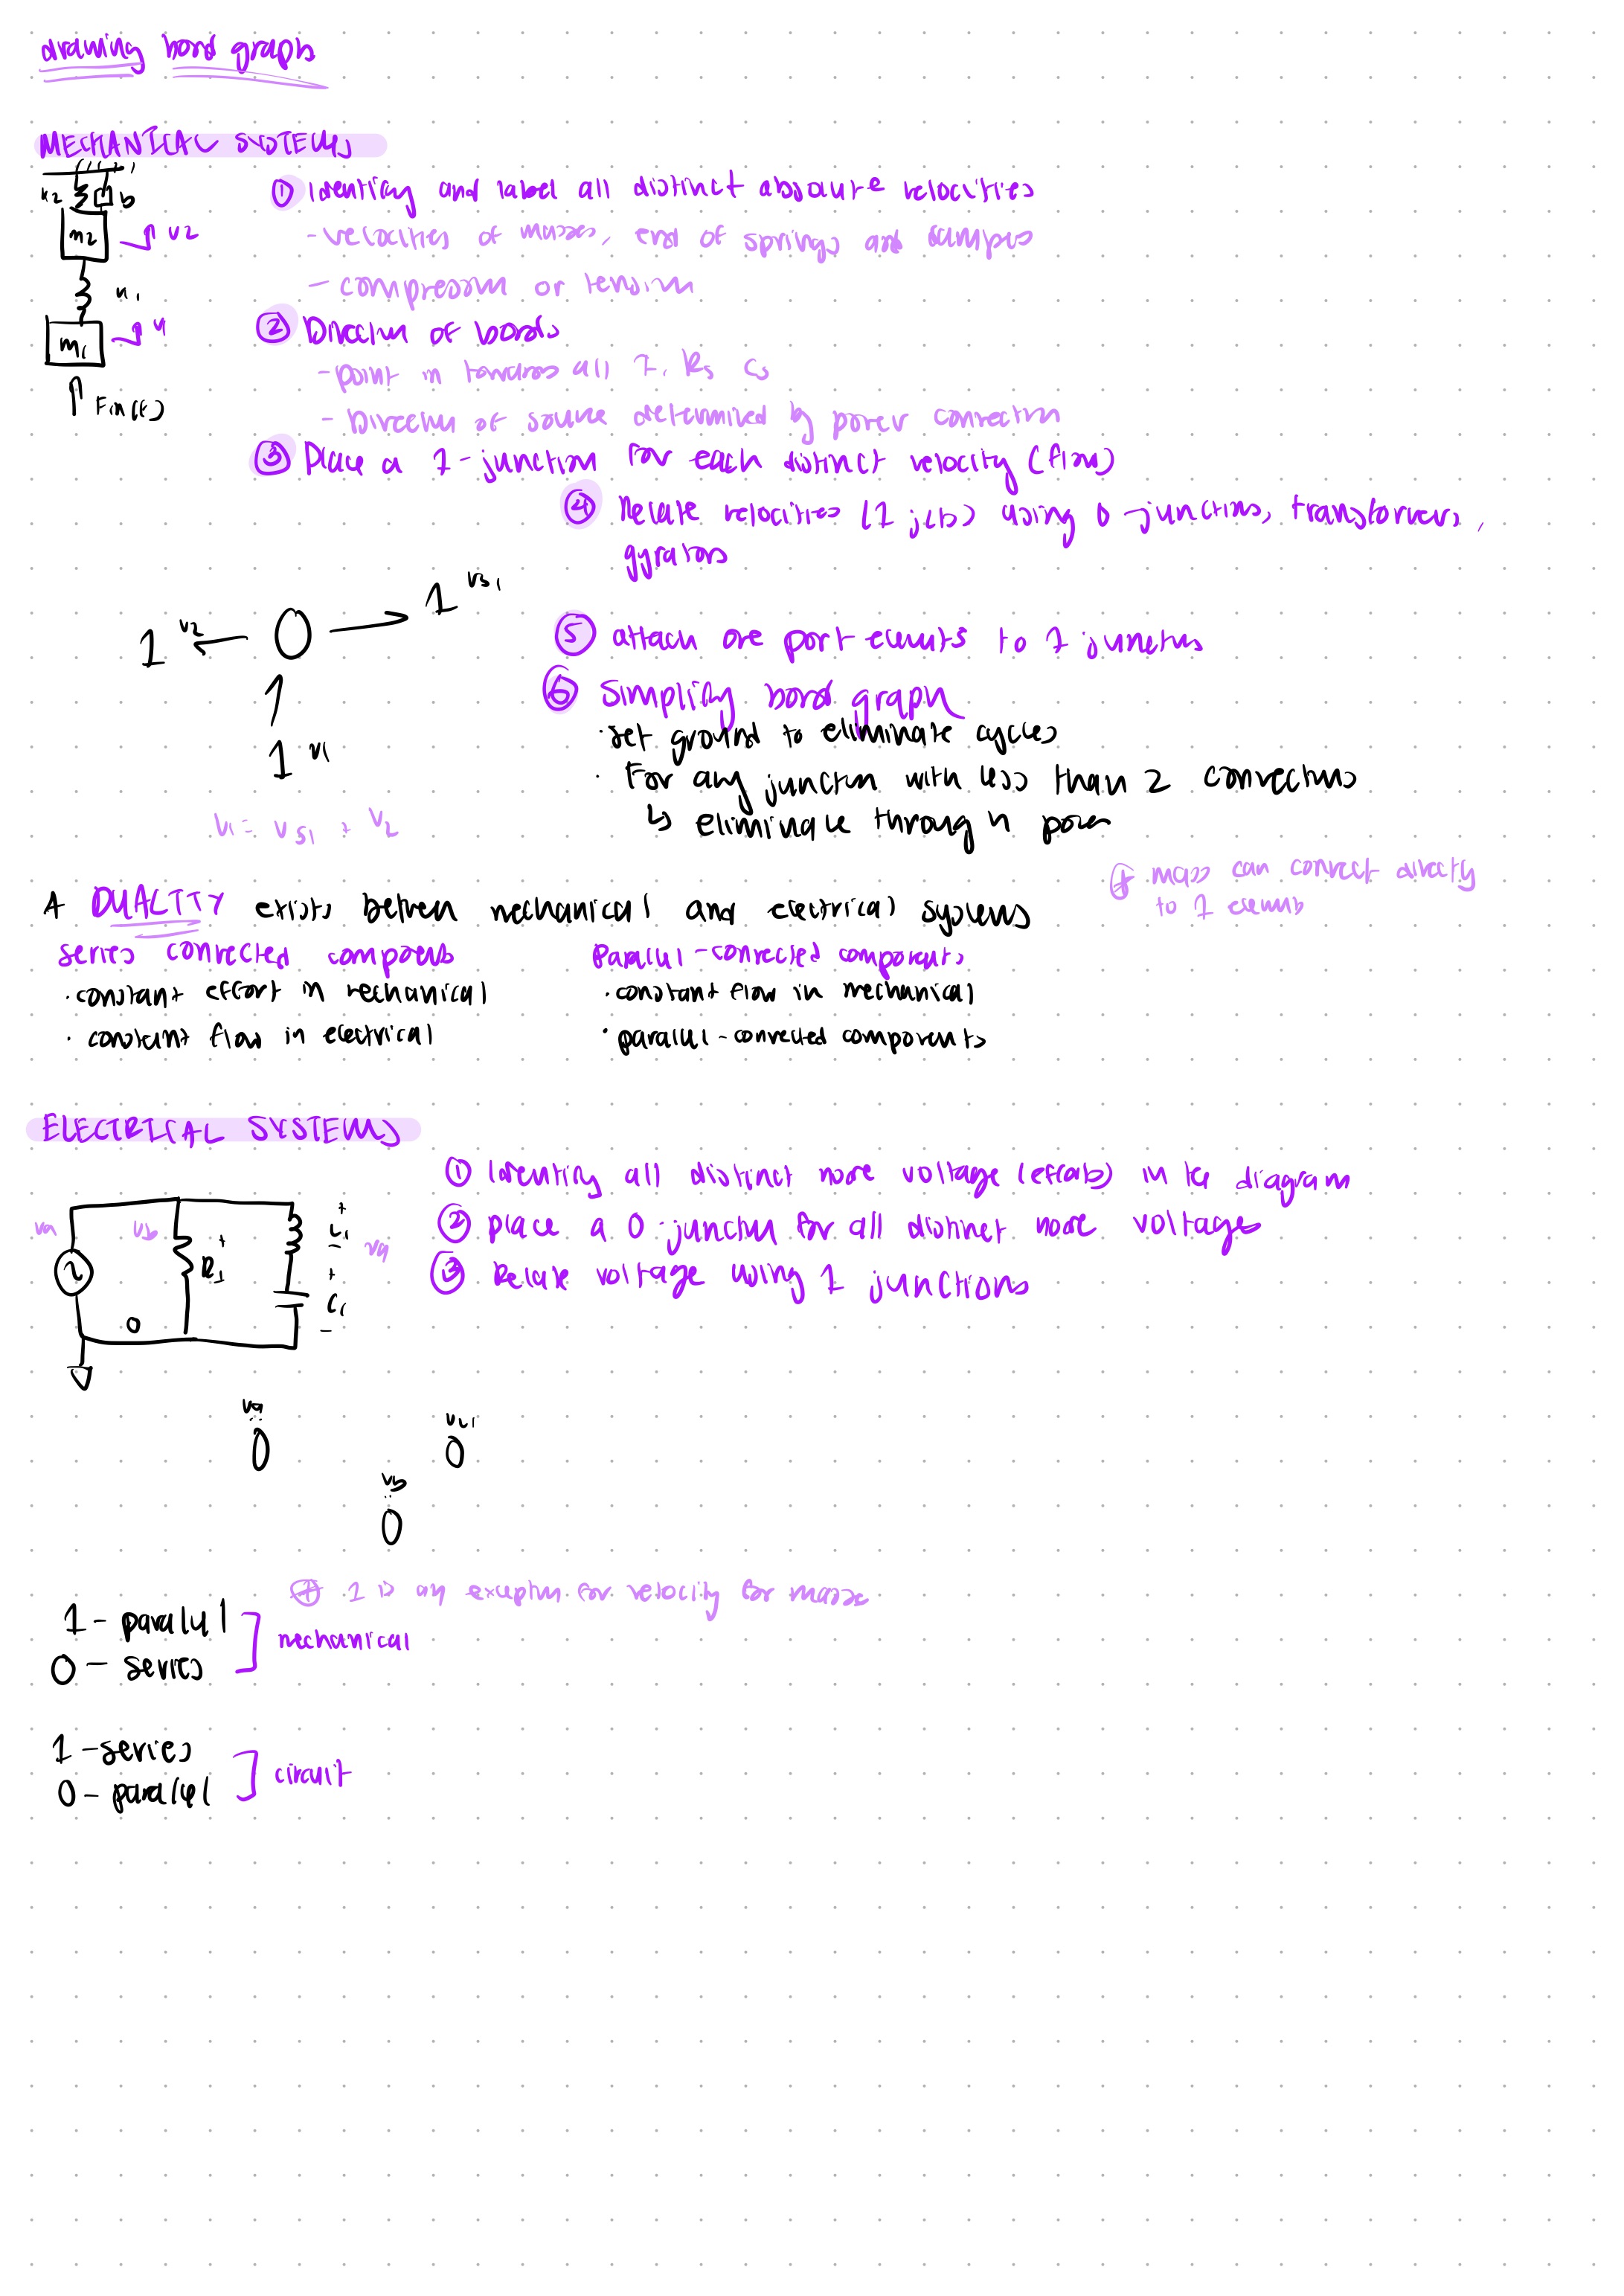 drawing bond graphs
MECHANICAL SYSTEMS
k2 b
m2 v2
k1
m1 v1
Fin(t)
① Identify and label all distinct absolute velocities
- velocities of masses, end of springs and dampers
- compression or tension
② Direction of bonds
- point in towards all I, Rs Cs
- Direction of source determined by power convection
③ Place a 1-junction for each distinct velocity (flow)
④ Relate velocities (1 jcts) using 0-junctions, transformers,
gyrators
1 v2 0 1 vs1
1 v1
v1 = vs1 + v2
⑤ attach one port elements to 1 junctions
⑥ Simplify bond graph
· set ground to eliminate cycles
· For any junction with less than 2 connections
↳ eliminate through power
* mass can connect directly
to 1 elements
A DUALITY exists between mechanical and electrical systems
series connected components
· constant effort in mechanical
· constant flow in electrical
Parallel-connected components
· constant flow in mechanical
· parallel-connected components
ELECTRICAL SYSTEMS
va vb + R1 - + L1 - va
+ C1 -
0
① Identify all distinct node voltage (efforts) in the diagram
② place a 0-junction for all distinct node voltages
③ Relate voltage using 1 junctions
va
0
vL1
0
vb
0
* 1 is an exception for velocity for masses
1 - parallel
0 - series
mechanical
1 - series
0 - parallel
circuit